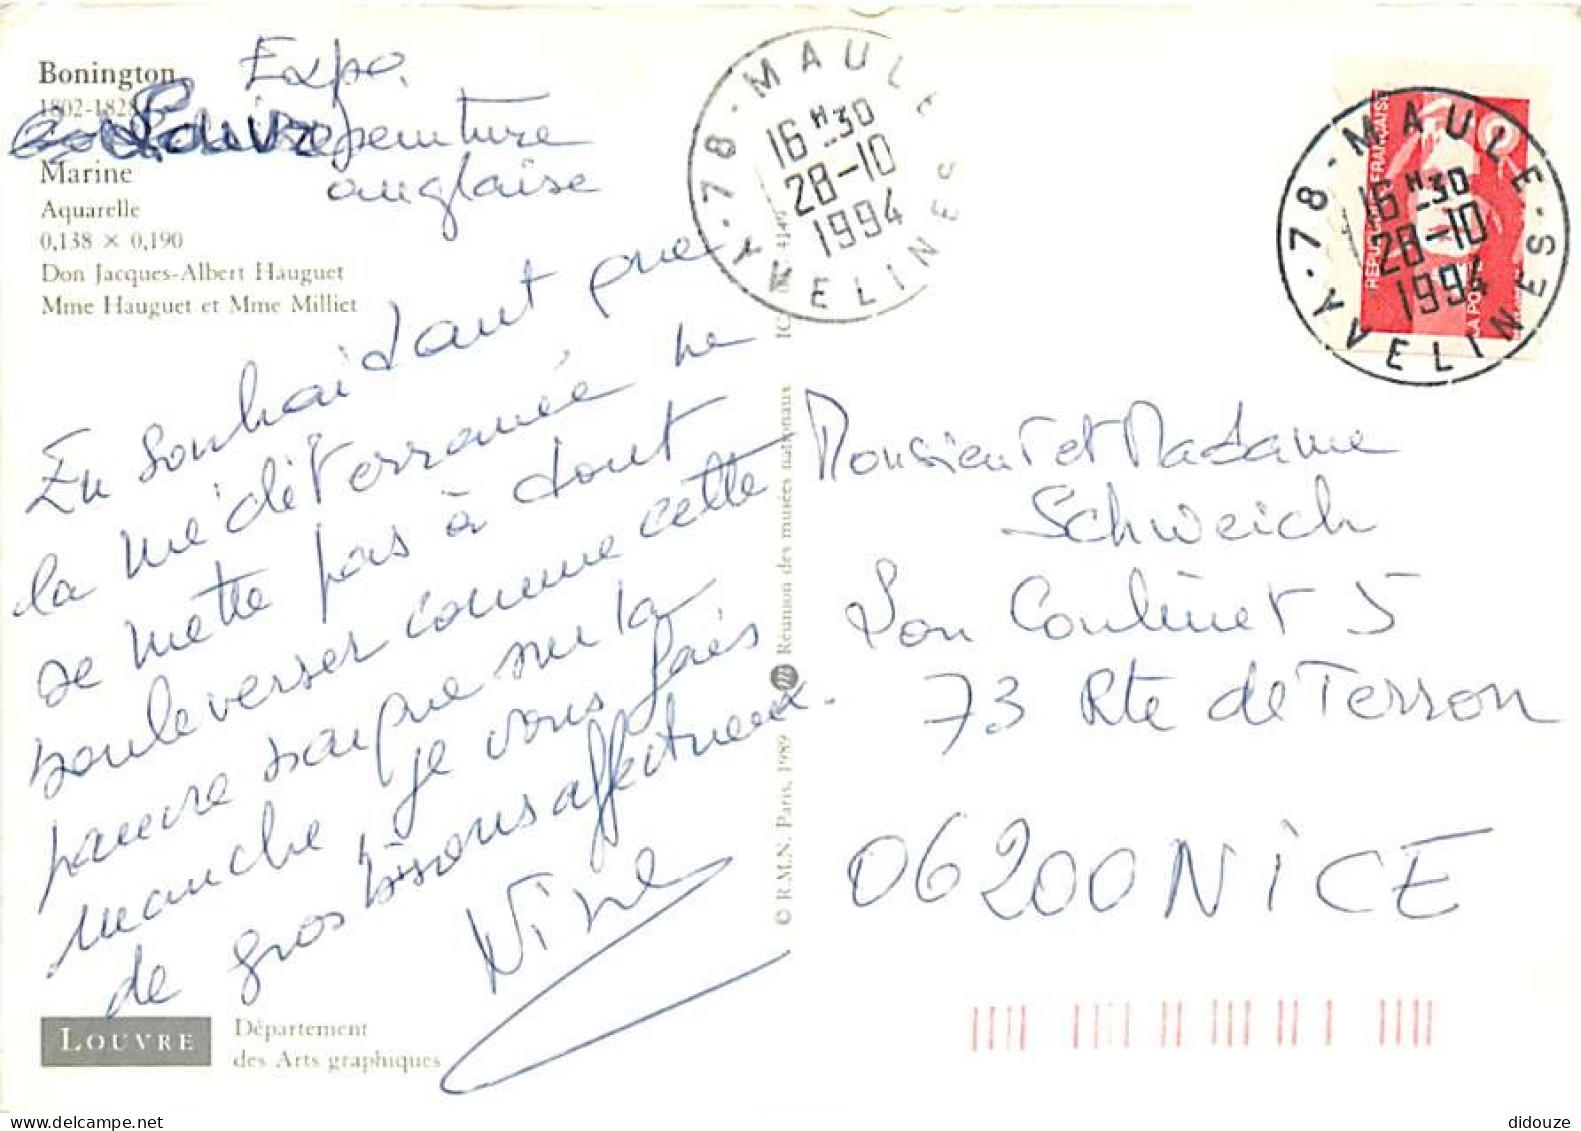 Bonington
1802-1828
Marine
Aquarelle
0,138 × 0,190
Don Jacques-Albert Hauguet
Mme Hauguet et Mme Milliet
Expo.
peinture
anglaise
En souhaitant que
la méditerranée ne
se mette pas à tout
bouleverser comme cette
pauvre barque sur la
manche je vous fais
de gros bisous affectueux.
Nine
LOUVRE
Département
des Arts graphiques
© R.M.N. Paris, 1989 Réunion des musées nationaux
78 - MAULE
16 H 30
28-10
1994
YVELINES
RÉPUBLIQUE FRANÇAISE
LA POSTE
78 - MAULE
16 H 30
28-10
1994
YVELINES
Monsieur et Madame
Schweich
73 Rte de Terron
06200 NICE
didouze